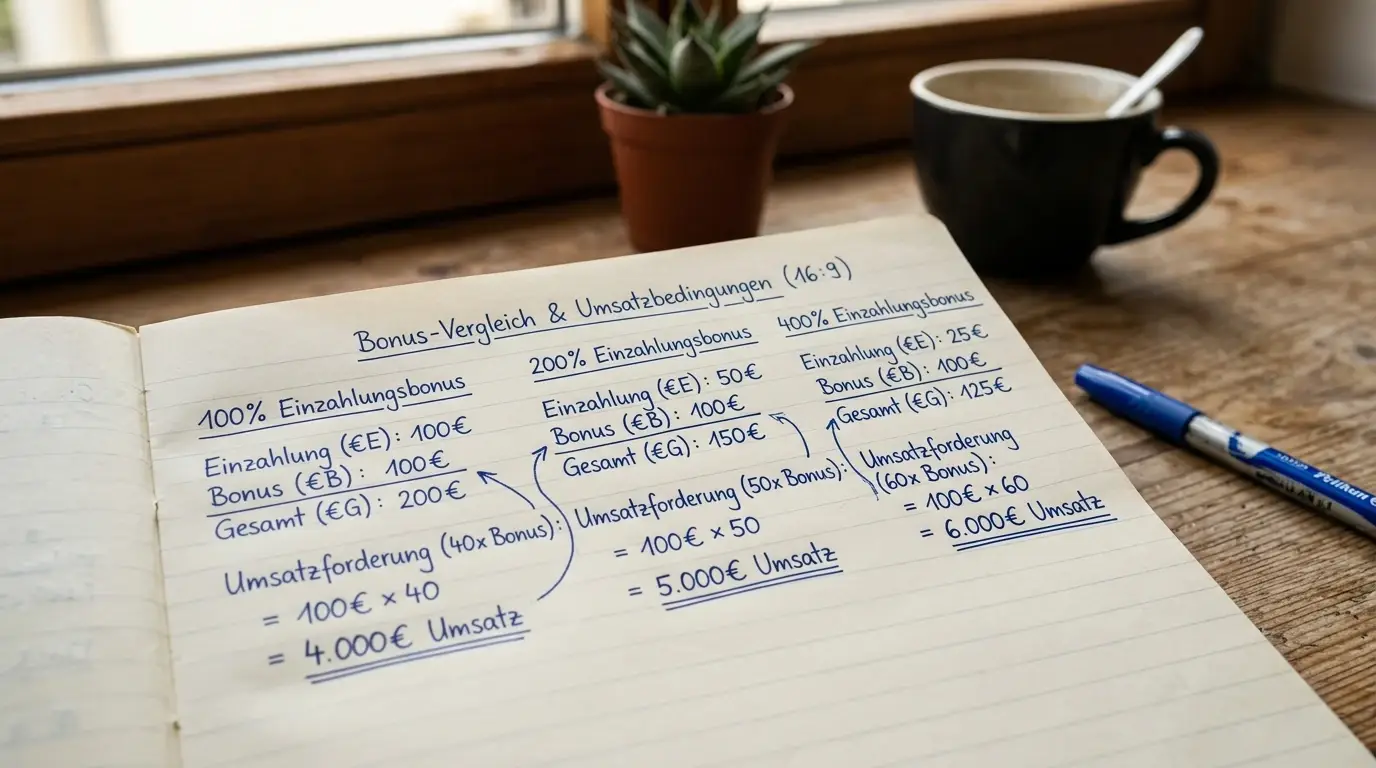 Bonus-Vergleich & Umsatzbedingungen (16:9)
100% Einzahlungsbonus
Einzahlung (€E): 100€
Bonus (€B): 100€
Gesamt (€G): 200€
Umsatzforderung (40x Bonus):
= 100€ × 40
= 4.000€ Umsatz
200% Einzahlungsbonus
Einzahlung (€E): 50€
Bonus (€B): 100€
Gesamt (€G): 150€
Umsatzforderung (50x Bonus):
= 100€ × 50
= 5.000€ Umsatz
400% Einzahlungsbonus
Einzahlung (€E): 25€
Bonus (€B): 100€
Gesamt (€G): 125€
Umsatzforderung
(60x Bonus):
= 100€ × 60
= 6.000€ Umsatz
Pelikan